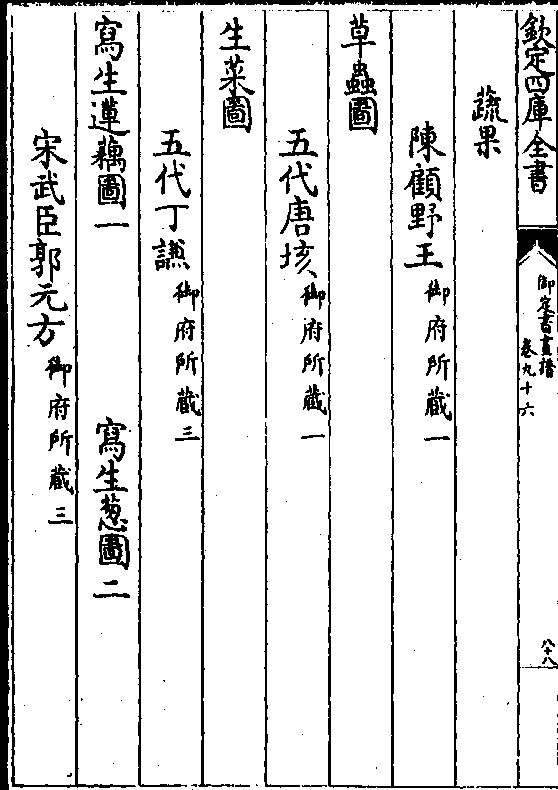 欽定四庫全書
御定書畫譜
卷九十六
八十八
蔬果
陳顧野王御府所藏一
草蟲圖
五代唐垓御府所藏一
生菜圖
五代丁謙御府所藏三
寫生蓮藕圖一　寫生葱圖二
宋武臣郭元方御府所藏三